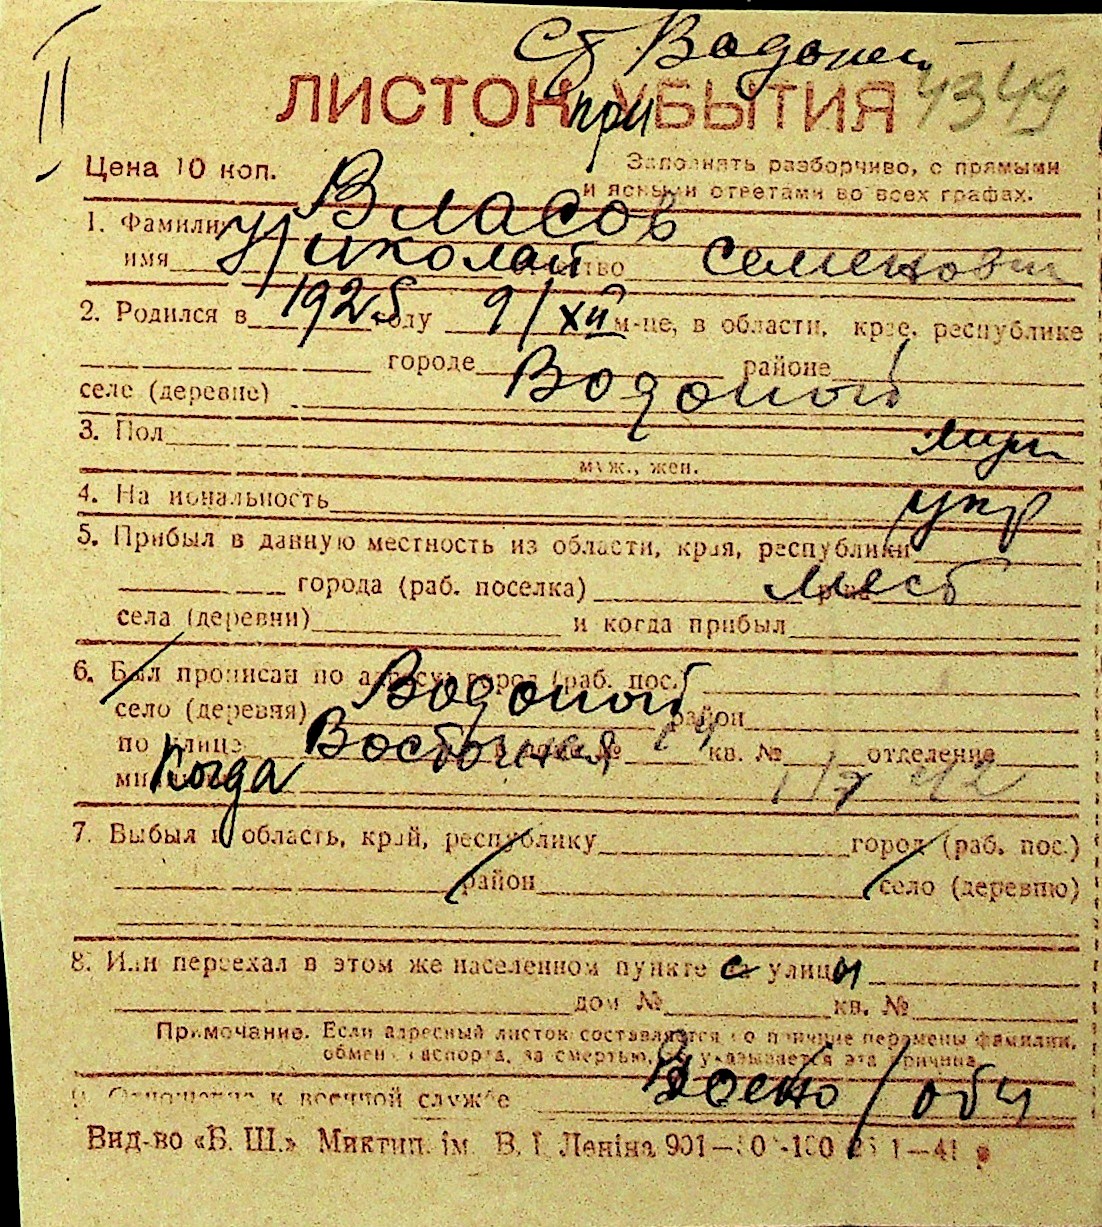 II
Ст. Водопой
ЛИСТОК УБЫТИЯ 4349
при
Цена 10 коп. Заполнять разборчиво, с прямыми
и ясными ответами во всех графах.
1. Фамилия Власов
имя Николай отчество Семенович
2. Родился в 1925 году 9/XII м-це, в области, крае, республике
городе районе
селе (деревне) Водопой
3. Пол муж
муж., жен.
4. Национальность укр
5. Прибыл в данную местность из области, края, республики
города (раб. поселка) р-на мест
села (деревни) и когда прибыл
6. Был прописан по адресу: город (раб. пос.)
село (деревня) Водопой район
по улице Восточная дом № 14 кв. № отделение
милиции Когда
7. Выбыл в область, край, республику город (раб. пос.)
район село (деревню)
8. Или переехал в этом же населенном пункте с улицы
дом № кв. №
Примечание. Если адресный листок составляется по причине перемены фамилии,
обмена паспорта, за смертью, то указывается эта причина.
9. Отношение к военной службе Воено/обя
Вид-во «Б. Ш.» Миктип. ім. В. І. Леніна 901